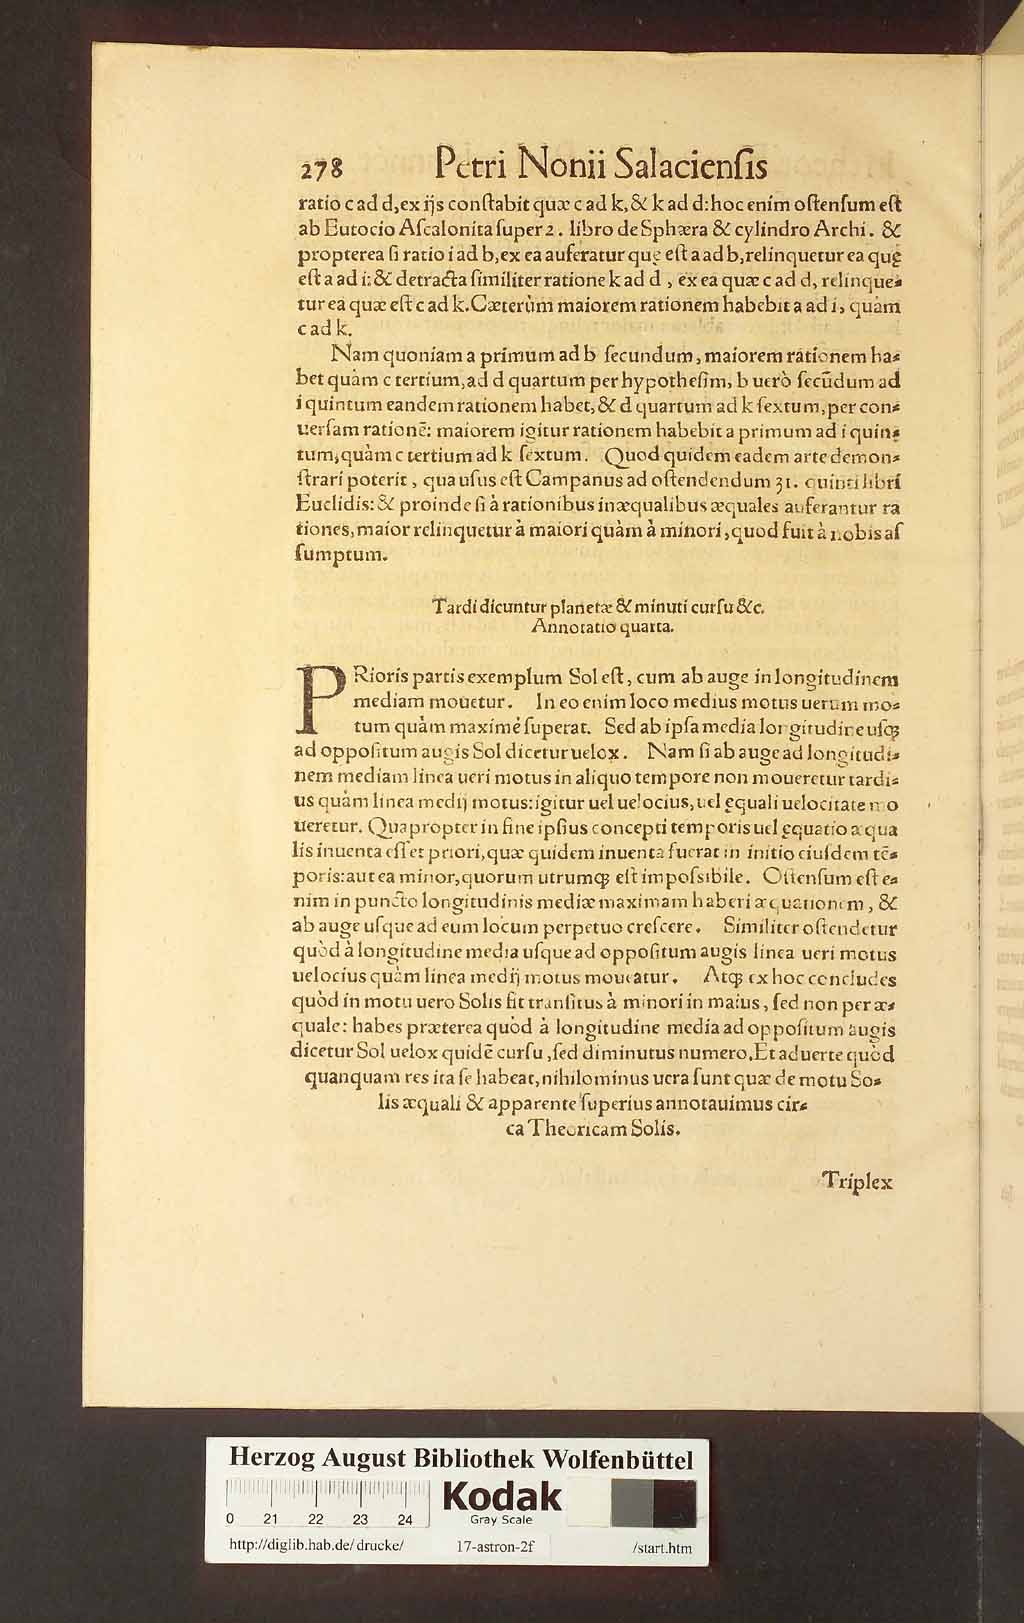 278 Petri Nonii Salacienſis
ratio c ad d, ex ijs conſtabit quæ c ad k, & k ad d: hoc enim oſtenſum eſt
ab Eutocio Aſcalonita ſuper 2. libro de Sphæra & cylindro Archi. &
propterea ſi ratio i ad b, ex ea auferatur quę eſt a ad b, relinquetur ea quę
eſt a ad i: & detracta ſimiliter ratione k ad d, ex ea quæ c ad d, relinque⸗
tur ea quæ eſt c ad k. Cæterùm maiorem rationem habebit a ad i, quàm
c ad k.
Nam quoniam a primum ad b ſecundum, maiorem rationem ha⸗
bet quàm c tertium, ad d quartum per hypotheſim, b uerò ſecūdum ad
i quintum eandem rationem habet, & d quartum ad k ſextum, per con⸗
uerſam rationē: maiorem igitur rationem habebit a primum ad i quin⸗
tum, quàm c tertium ad k ſextum. Quod quidem eadem arte demon⸗
ſtrari poterit, qua uſus eſt Campanus ad oſtendendum 31. quinti libri
Euclidis: & proinde ſi à rationibus inæqualibus æquales auferantur ra
tiones, maior relinquetur à maiori quàm à minori, quod fuit à nobis aſ
ſumptum.
Tardi dicuntur planetæ & minuti curſu &c.
Annotatio quarta.
PRioris partis exemplum Sol eſt, cum ab auge in longitudinem
mediam mouetur. In eo enim loco medius motus uerum mo⸗
tum quàm maximé ſuperat. Sed ab ipſa media longitudine uſq;
ad oppoſitum augis Sol dicetur uelox. Nam ſi ab auge ad longitudi⸗
nem mediam linea ueri motus in aliquo tempore non moueretur tardi⸗
us quàm linea medij motus: igitur uel uelocius, uel ęquali uelocitate mo
ueretur. Quapropter in fine ipſius concepti temporis uel ęquatio æqua
lis inuenta eſſet priori, quæ quidem inuenta fuerat in initio eiuſdem tē⸗
poris: aut ea minor, quorum utrumq; eſt impoſsibile. Oſtenſum eſt e⸗
nim in puncto longitudinis mediæ maximam haberi æquationem, &
ab auge uſque ad eum locum perpetuo creſcere. Similiter oſtendetur
quòd à longitudine media uſque ad oppoſitum augis linea ueri motus
uelocius quàm linea medij motus moueatur. Atq; ex hoc concludes
quòd in motu uero Solis fit tranſitus à minori in maius, ſed non per æ⸗
quale: habes præterea quòd à longitudine media ad oppoſitum augis
dicetur Sol uelox quidē curſu, ſed diminutus numero. Et aduerte quòd
quanquam res ita ſe habeat, nihilominus uera ſunt quæ de motu So⸗
lis æquali & apparente ſuperius annotauimus cir⸗
ca Theoricam Solis.
Triplex
Herzog August Bibliothek Wolfenbüttel
0 21 22 23 24
Kodak
Gray Scale
http://diglib.hab.de/drucke/ 17-astron-2f /start.htm